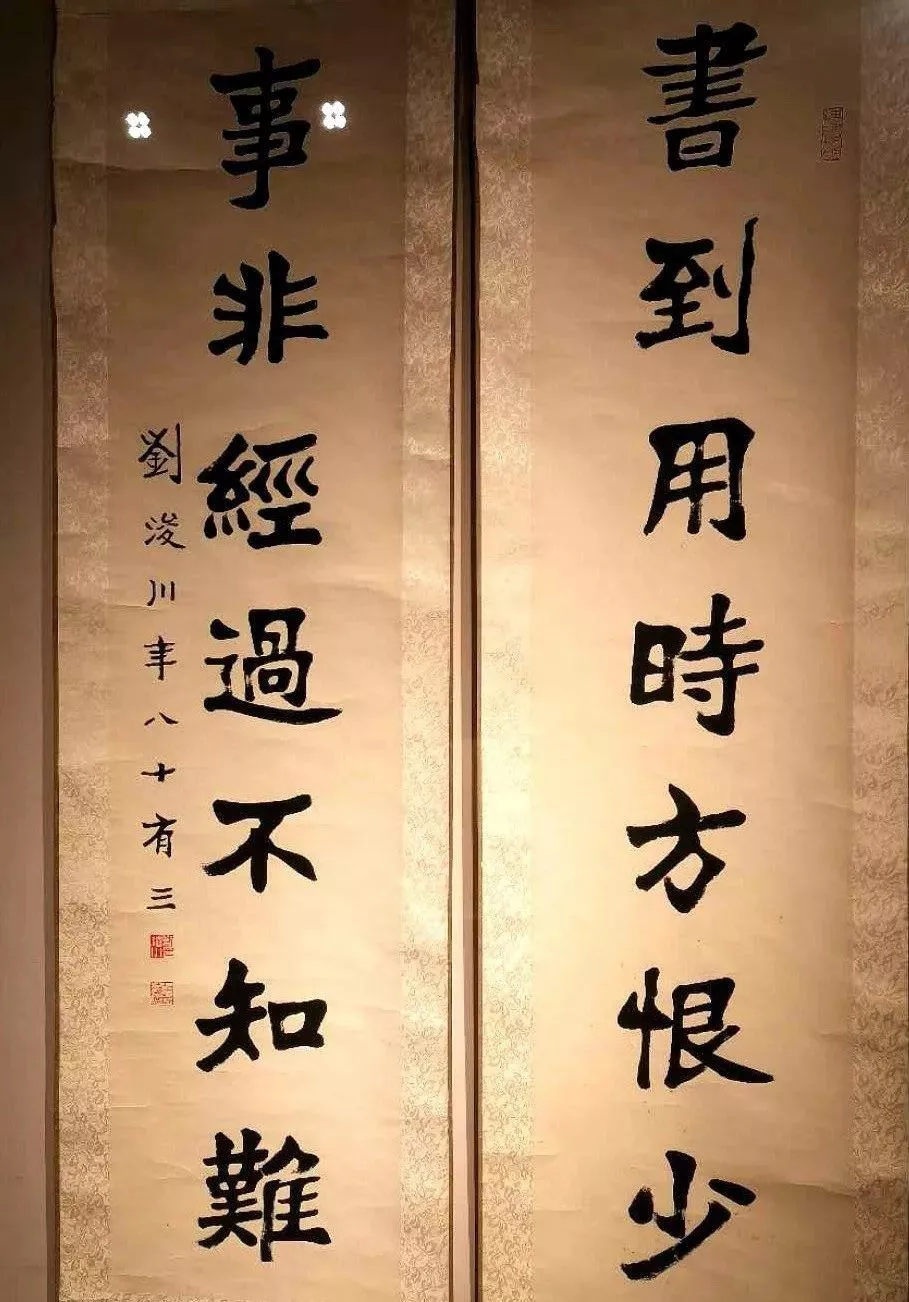 書到用時方恨少
事非經過不知難
劉浚川年八十有三